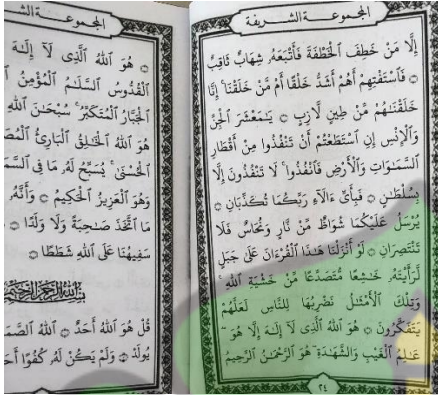 المجموعة الشريفة
إِلَّا مَنْ خَطِفَ ٱلْخَطْفَةَ فَأَتْبَعَهُۥ شِهَابٌ ثَاقِبٌ
۝ فَٱسْتَفْتِهِمْ أَهُمْ أَشَدُّ خَلْقًا أَم مَّنْ خَلَقْنَآ ۚ إِنَّا
خَلَقْنَـٰهُم مِّن طِينٍ لَّازِبٍۭ ۝ يَـٰمَعْشَرَ ٱلْجِنِّ
وَٱلْإِنسِ إِنِ ٱسْتَطَعْتُمْ أَن تَنفُذُوا۟ مِنْ أَقْطَارِ
ٱلسَّمَـٰوَٰتِ وَٱلْأَرْضِ فَٱنفُذُوا۟ ۚ لَا تَنفُذُونَ إِلَّا
بِسُلْطَـٰنٍ ۝ فَبِأَىِّ ءَالَآءِ رَبِّكُمَا تُكَذِّبَانِ ۝
يُرْسَلُ عَلَيْكُمَا شُوَاظٌ مِّن نَّارٍ وَنُحَاسٌ فَلَا
تَنتَصِرَانِ ۝ لَوْ أَنزَلْنَا هَـٰذَا ٱلْقُرْءَانَ عَلَىٰ جَبَلٍ
لَّرَأَيْتَهُۥ خَـٰشِعًا مُّتَصَدِّعًا مِّنْ خَشْيَةِ ٱللَّهِ ۚ
وَتِلْكَ ٱلْأَمْثَـٰلُ نَضْرِبُهَا لِلنَّاسِ لَعَلَّهُمْ
يَتَفَكَّرُونَ ۝ هُوَ ٱللَّهُ ٱلَّذِى لَآ إِلَـٰهَ إِلَّا هُوَ ۖ
عَـٰلِمُ ٱلْغَيْبِ وَٱلشَّهَـٰدَةِ ۖ هُوَ ٱلرَّحْمَـٰنُ ٱلرَّحِيمُ
٢٤
المجموعة الشريفة
۝ هُوَ ٱللَّهُ ٱلَّذِى لَآ إِلَـٰهَ
ٱلْقُدُّوسُ ٱلسَّلَـٰمُ ٱلْمُؤْمِنُ
ٱلْجَبَّارُ ٱلْمُتَكَبِّرُ ۚ سُبْحَـٰنَ ٱللَّهِ
هُوَ ٱللَّهُ ٱلْخَـٰلِقُ ٱلْبَارِئُ
ٱلْحُسْنَىٰ ۚ يُسَبِّحُ لَهُۥ مَا فِى
وَهُوَ ٱلْعَزِيزُ ٱلْحَكِيمُ ۝ وَأَنَّهُۥ
مَا ٱتَّخَذَ صَـٰحِبَةً وَلَا وَلَدًا ۝
سَفِيهُنَا عَلَى ٱللَّهِ شَطَطًا ۝
بسم الله الرحمن الرحيم
قُلْ هُوَ ٱللَّهُ أَحَدٌ ۝ ٱللَّهُ
يُولَدْ ۝ وَلَمْ يَكُن لَّهُۥ كُفُوًا